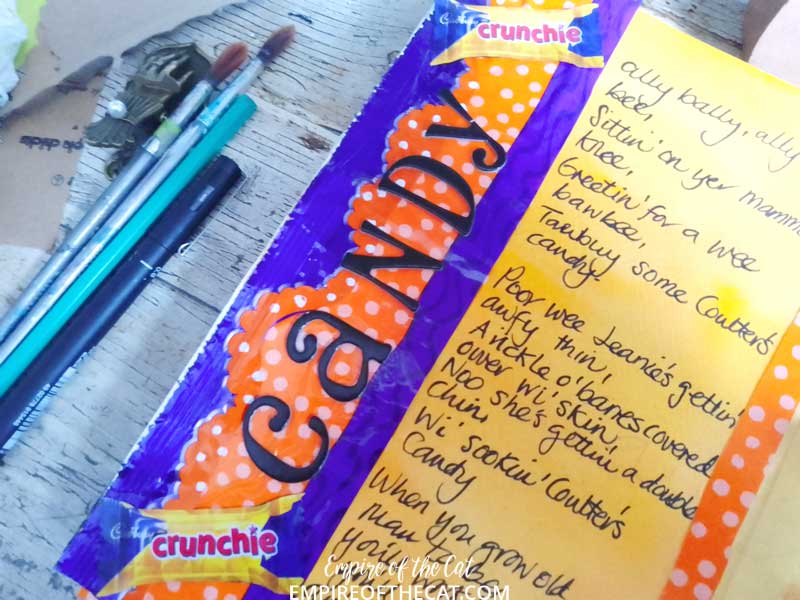 Cadbury
crunchie
CANDY
Cadbury
crunchie
ally bally, ally
bee,
Sittin' on yer mamm
knee,
Greetin' for a wee
bawbee,
Tae buy some Coulter's
candy.
Poor wee Jeanie's gettin'
awfy thin,
A rickle o' banes covered
ower wi' skin,
Noo she's gettin' a double
chin,
Wi' sookin' Coulter's
Candy
When you grow old
man
Empire of the Cat
EMPIREOFTHECAT.COM